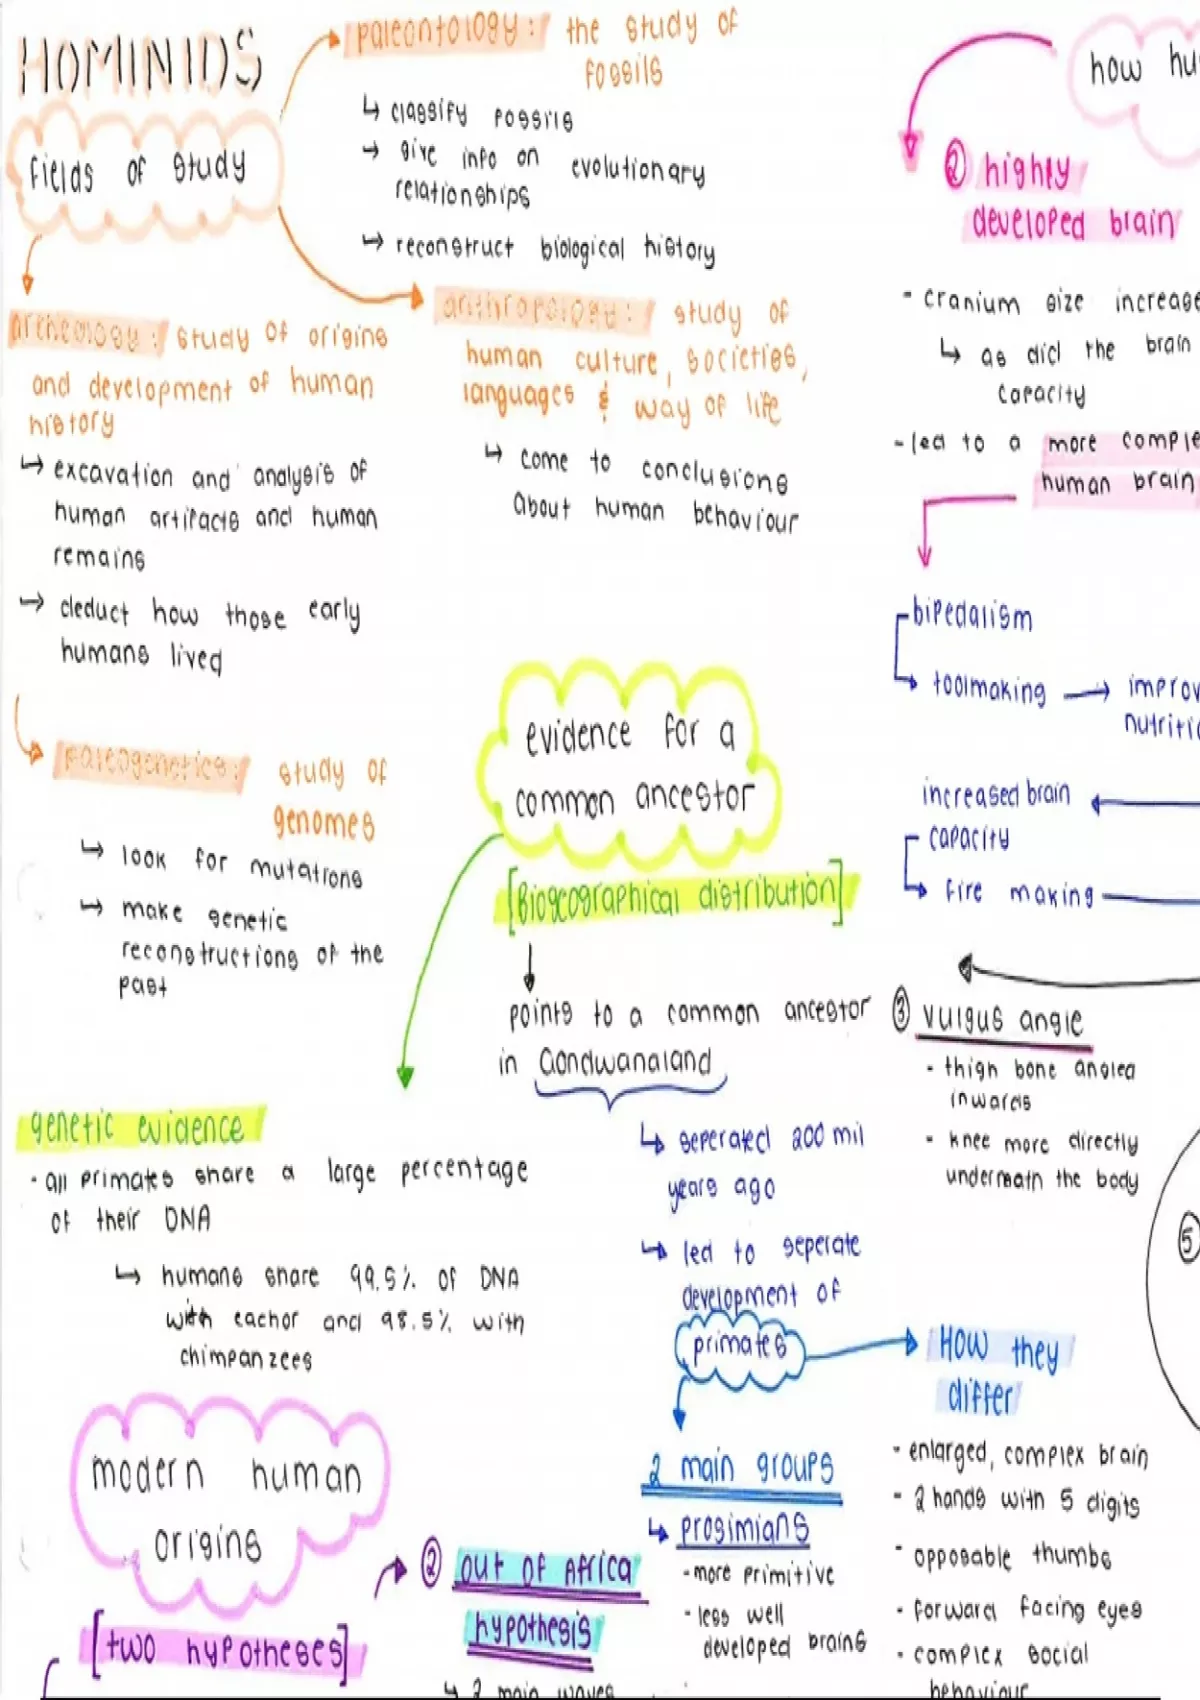 HOMINIDS
fields of study
paleontology: the study of
fossils
↳ classify fossils
→ give info on evolutionary
relationships
↳ reconstruct biological history
archeology: study of origins
and development of human
history
↳ excavation and analysis of
human artifacts and human
remains
↳ deduct how those early
humans lived
anthropology: study of
human culture, societies,
languages & way of life
↳ come to conclusions
about human behaviour
paleogenetics: study of
genomes
↳ look for mutations
↳ make genetic
reconstructions of the
past
evidence for a
common ancestor
[Biogeographical distribution]
points to a common ancestor
in Gondwanaland
↳ seperated 200 mil
years ago
↳ led to seperate
development of
primates
genetic evidence
- all primates share a large percentage
of their DNA
↳ humans share 99.5% of DNA
with eachor and 98.5% with
chimpanzees
2 main groups
↳ prosimians
- more primitive
- less well
developed brains
How they
differ
- enlarged, complex brain
- 2 hands with 5 digits
- opposable thumbs
- forward facing eyes
- complex social
behaviour
modern human
origins
[two hypotheses]
② out of Africa
hypothesis
↳ 2 main waves
how hu
② highly
developed brain
- cranium size increase
↳ as did the brain
capacity
- led to a more comple
human brain
bipedalism
↳ toolmaking → improv
nutritio
increased brain
capacity
↳ fire making
③ vulgus angle
- thigh bone angled
inwards
- knee more directly
underneath the body
⑤